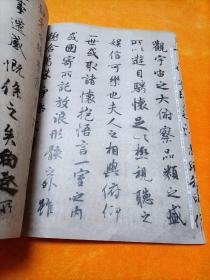 觀宇宙之大俯察品類之盛
所以遊目騁懷足以極視聽之
娛信可樂也夫人之相與俯仰
一世或取諸懷抱悟言一室之內
或因寄所託放浪形骸之外雖
事遷感慨係之矣向之所